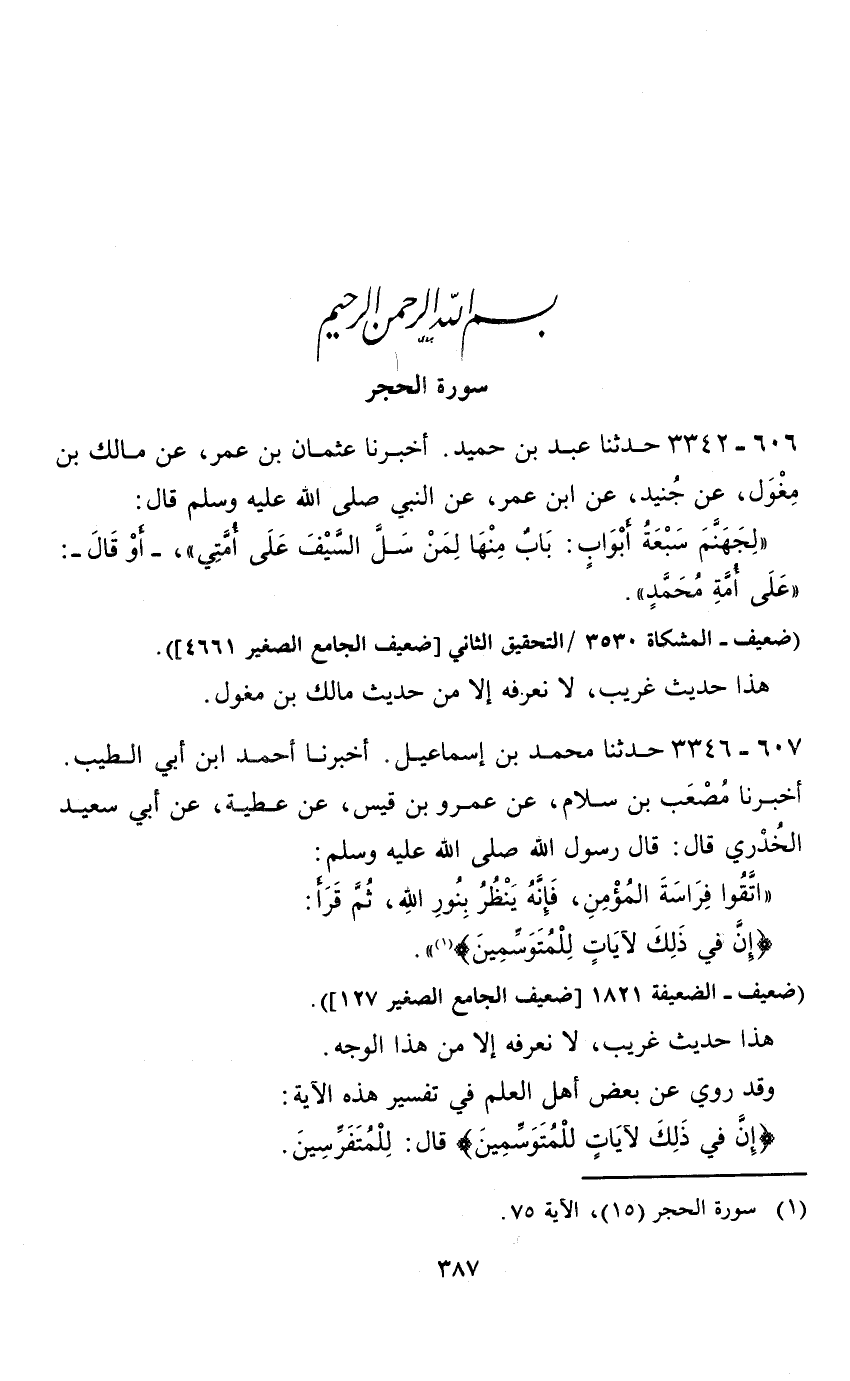 بسم الله الرحمن الرحيم
سورة الحجر
٦٠٦ - ٣٣٤٢ حدثنا عبد بن حميد. أخبرنا عثمان بن عمر، عن مالك بن
مِغْوَل، عن جُنيد، عن ابن عمر، عن النبي صلى الله عليه وسلم قال:
«لِجَهَنَّمَ سَبْعَةُ أَبْوَابٍ: بَابٌ مِنْهَا لِمَنْ سَلَّ السَّيْفَ عَلَى أُمَّتِي»، - أَوْ قَالَ -:
«عَلَى أُمَّةِ مُحَمَّدٍ».
(ضعيف - المشكاة ٣٥٣٠ / التحقيق الثاني [ضعيف الجامع الصغير ٤٦٦١]).
هذا حديث غريب، لا نعرفه إلا من حديث مالك بن مغول.
٦٠٧ - ٣٣٤٦ حدثنا محمد بن إسماعيل. أخبرنا أحمد ابن أبي الطيب.
أخبرنا مُصْعَب بن سلام، عن عمرو بن قيس، عن عطية، عن أبي سعيد
الخُدْري قال: قال رسول الله صلى الله عليه وسلم:
«اتَّقُوا فِرَاسَةَ المُؤْمِنِ، فَإِنَّهُ يَنْظُرُ بِنُورِ اللهِ، ثُمَّ قَرَأَ:
﴿إِنَّ في ذَلِكَ لآيَاتٍ لِلْمُتَوَسِّمِينَ﴾(١)».
(ضعيف - الضعيفة ١٨٢١ [ضعيف الجامع الصغير ١٢٧]).
هذا حديث غريب، لا نعرفه إلا من هذا الوجه.
وقد روي عن بعض أهل العلم في تفسير هذه الآية:
﴿إِنَّ في ذَلِكَ لآيَاتٍ للْمُتَوَسِّمِينَ﴾ قال: لِلْمُتَفَرِّسِينَ.
(١) سورة الحجر (١٥)، الآية ٧٥.
٣٨٧